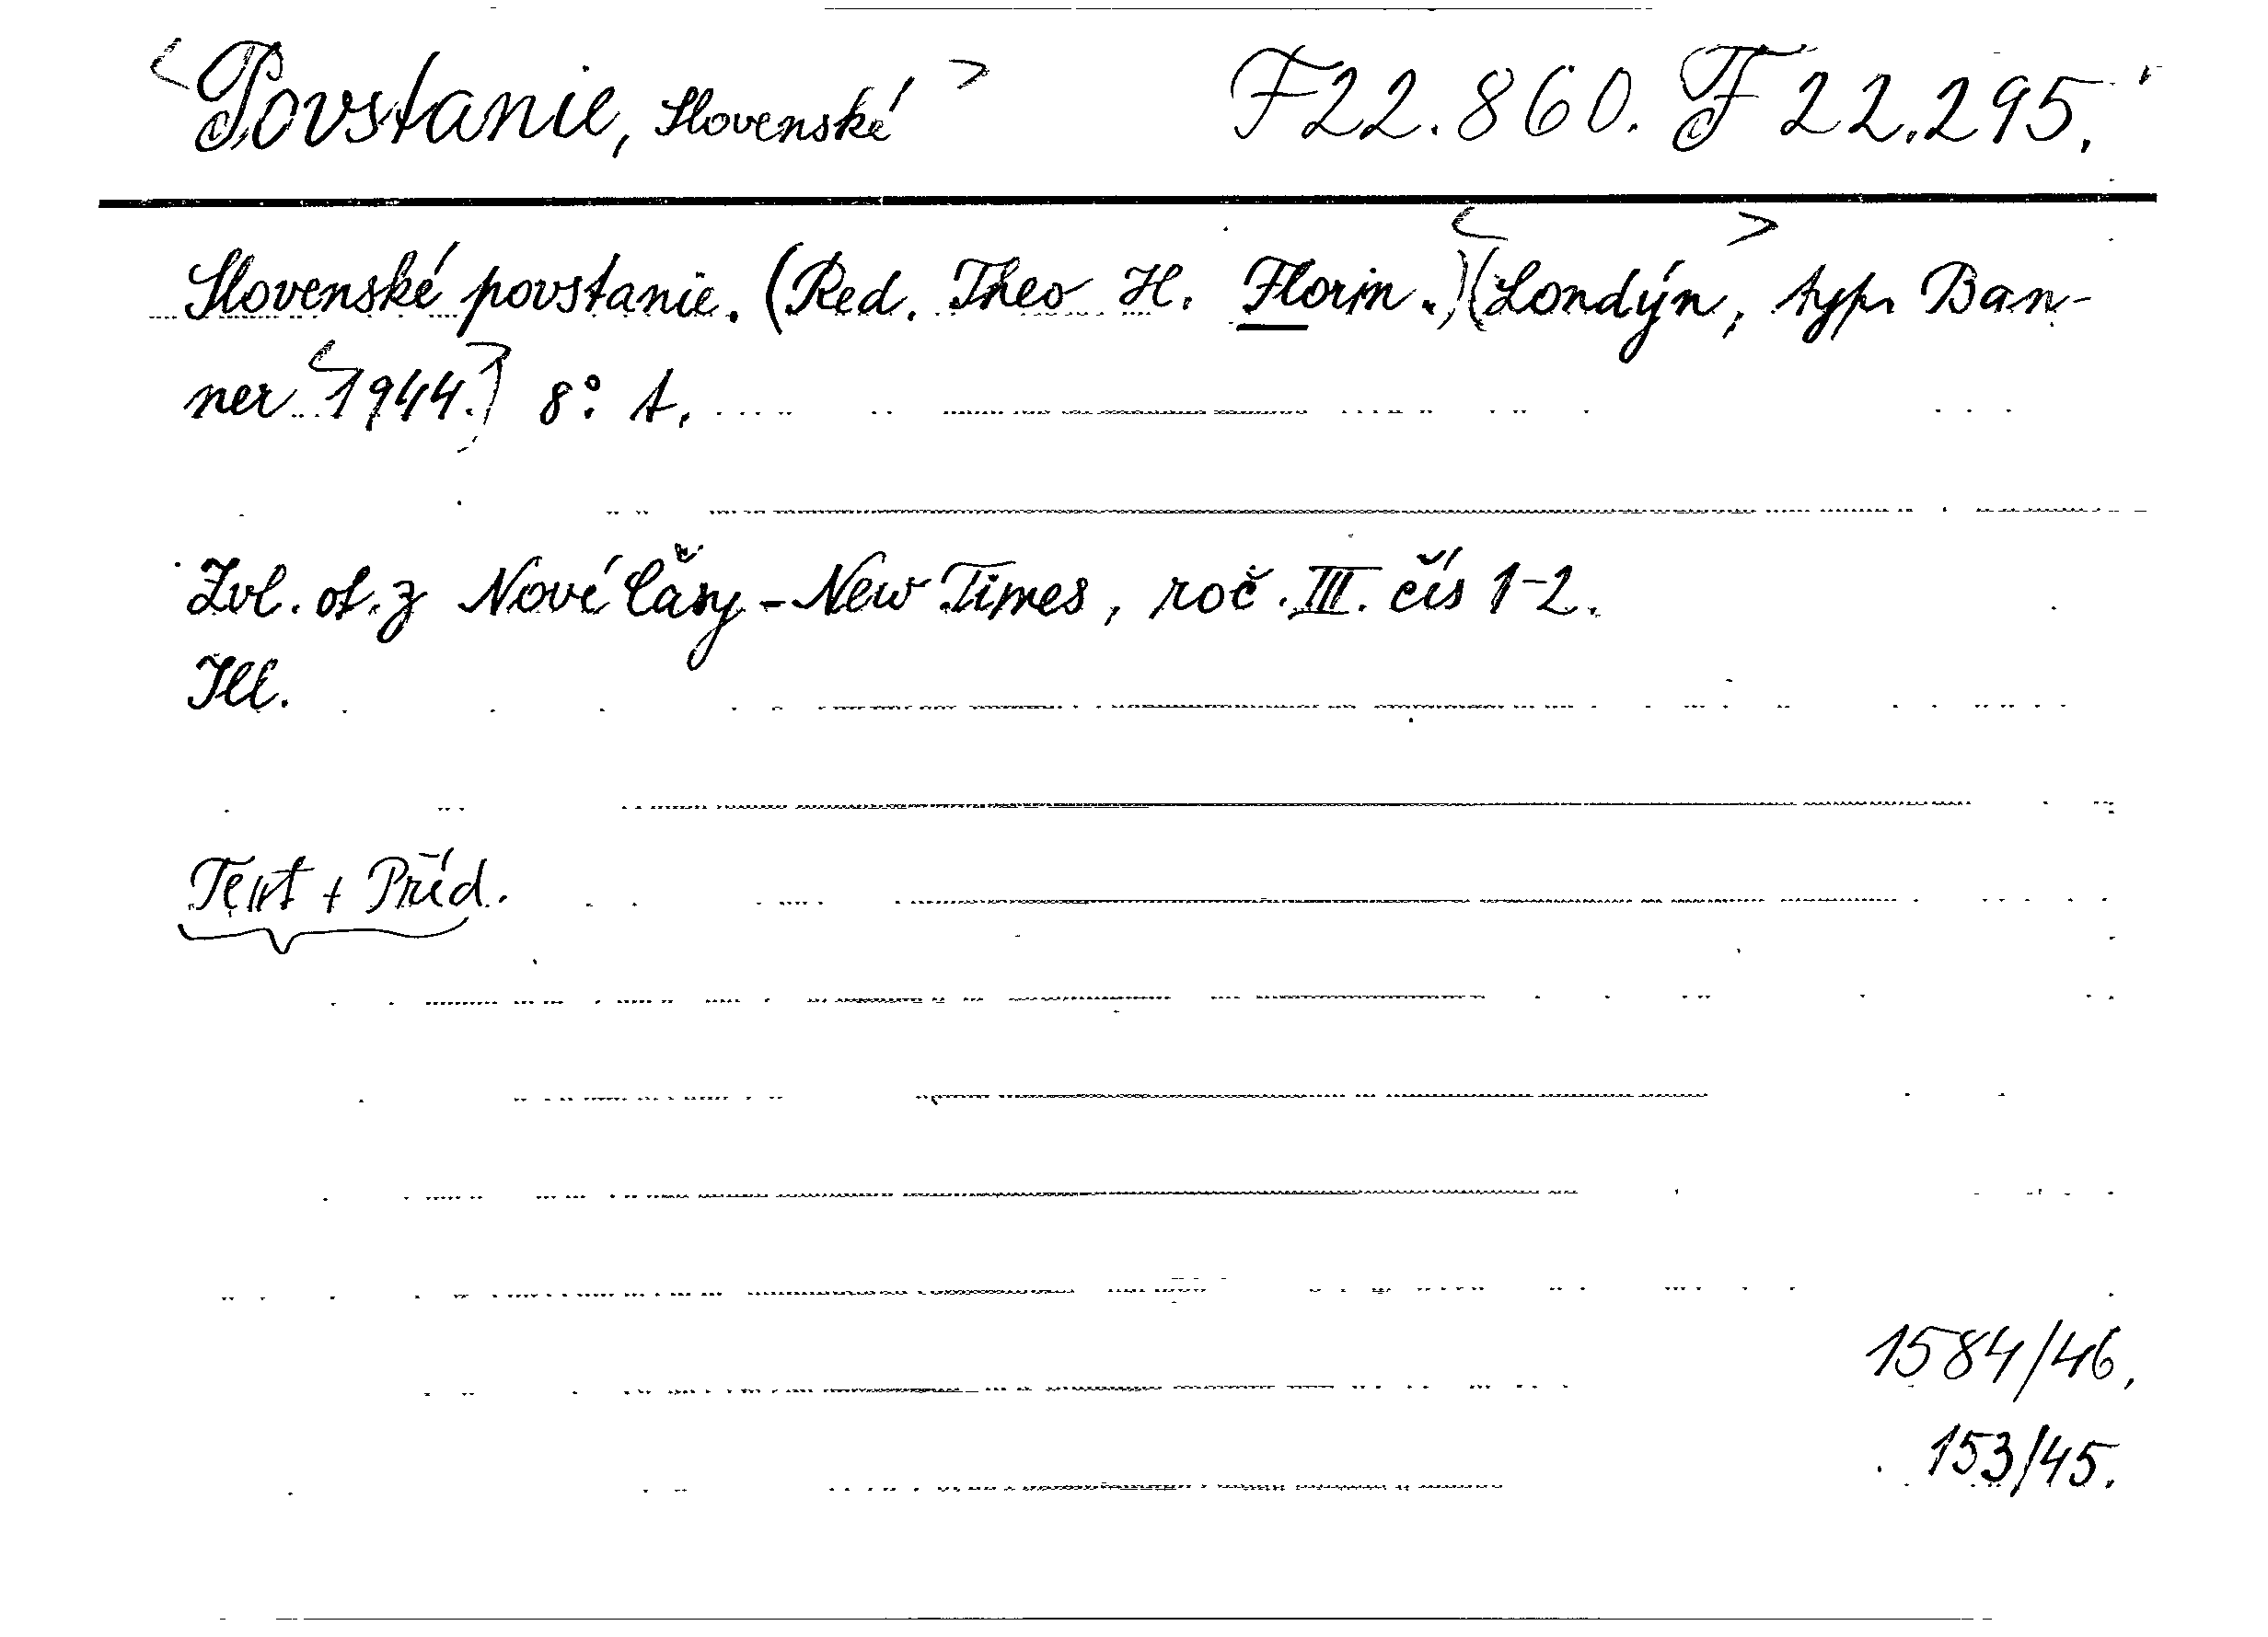 <Povstanie, Slovenské> F 22.860. F 22.295.
Slovenské povstanie. (Red. Theo H. Florin.) (<Londýn>, typ. Ban-
ner <1944>.) 8°. A.
Zvl. ot. z Nové Časy - New Times, roč. III. čís 1-2.
Ill.
Text + Příd.
1584/46.
153/45.